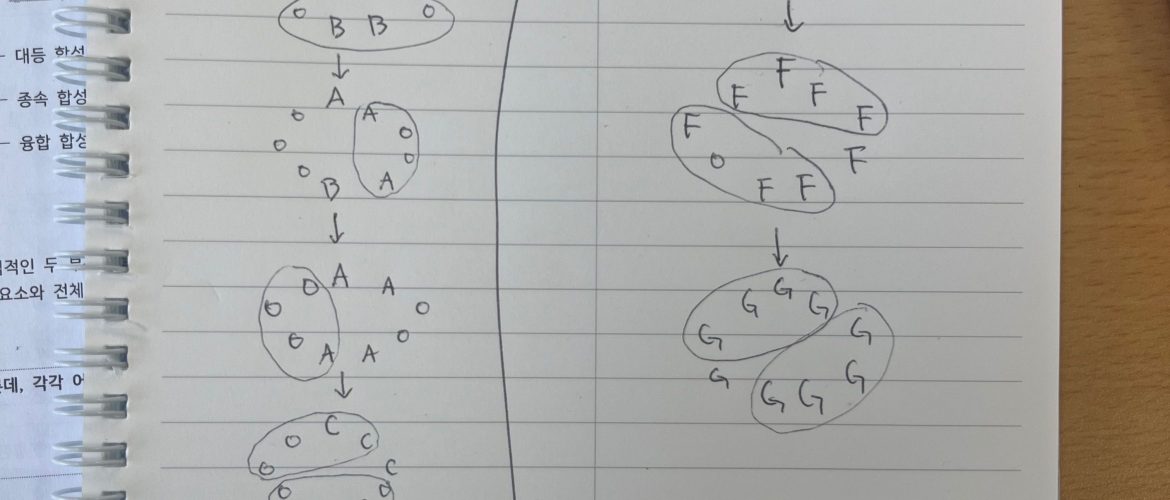 대등 합성
종속 합성
융합 합성
적인 두
요소와 전체
데, 각각 어
o B B o
A
o A o
o o
o B A
o A A
o o
o o
A A
o C C
o C
o o
F
F F F
F
o F
F F
G
G G
G G
G G
G G